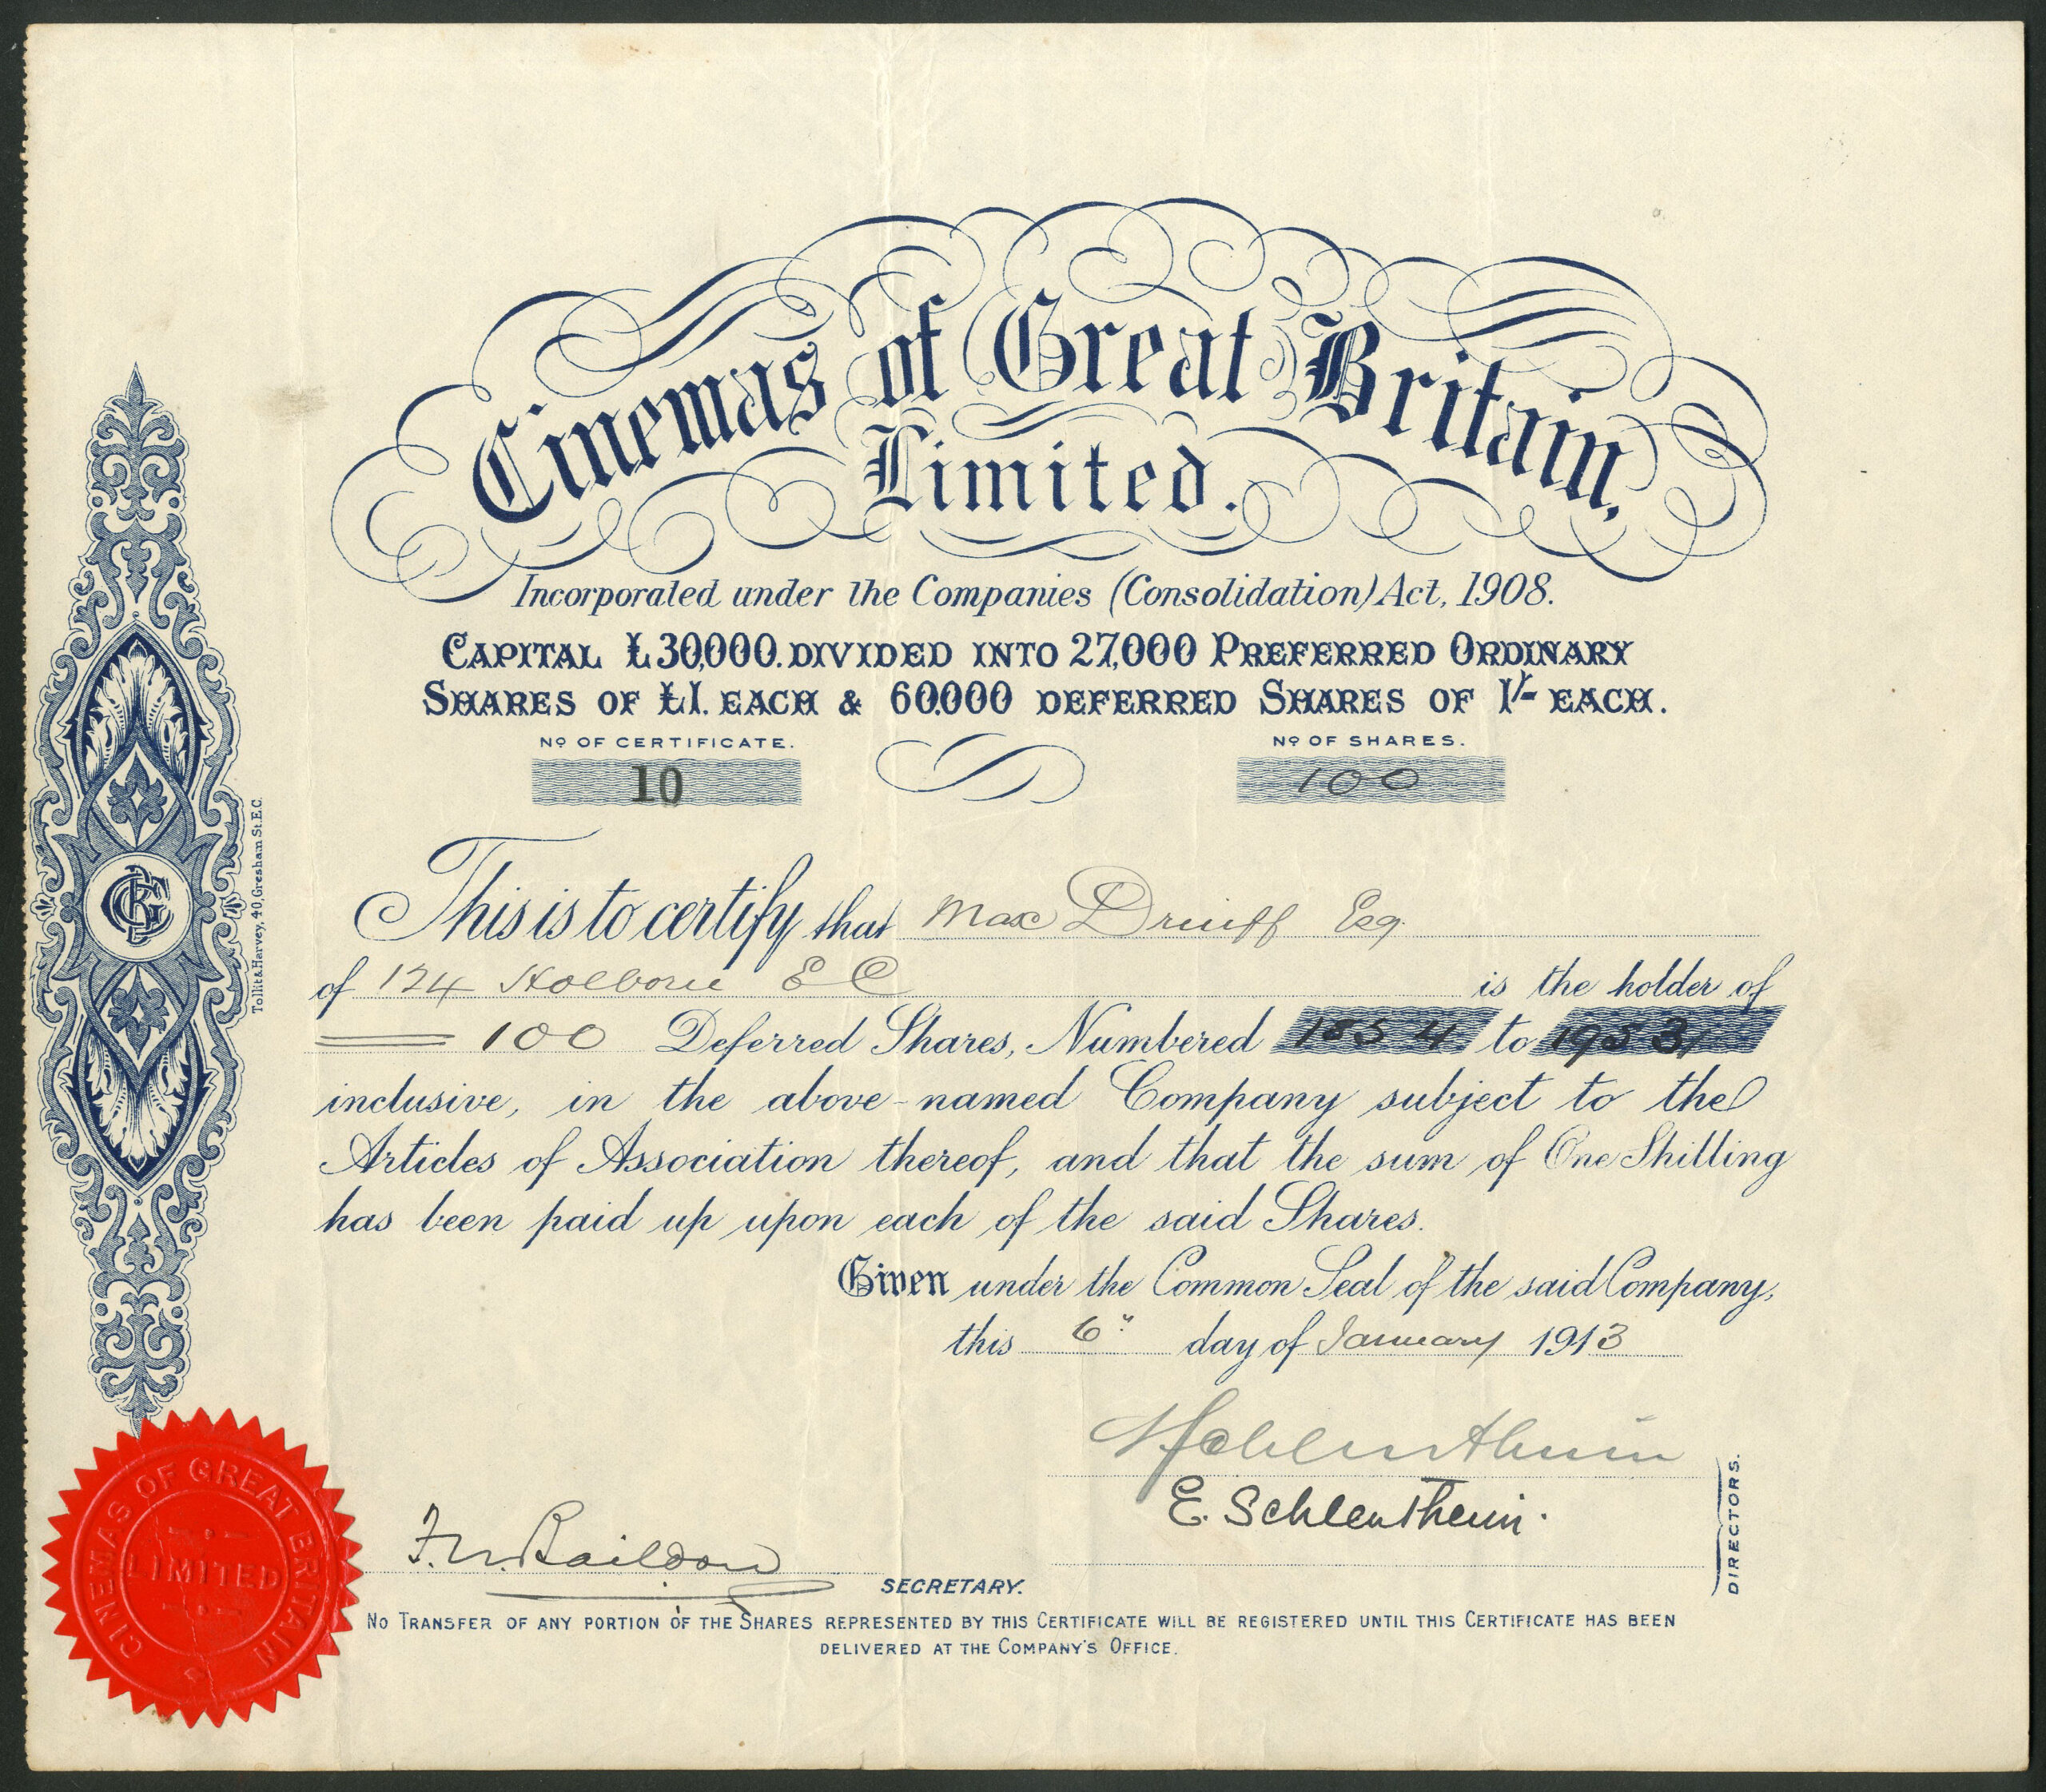 Cinemas of Great Britain,
Limited.
Incorporated under the Companies (Consolidation) Act, 1908.
CAPITAL £30,000. DIVIDED INTO 27,000 PREFERRED ORDINARY
SHARES OF £1. EACH & 60,000 DEFERRED SHARES OF 1/- EACH.
No OF CERTIFICATE. No OF SHARES.
10 100
This is to certify that Max Druiff Esq.
of 124 Holborn E C is the holder of
100 Deferred Shares, Numbered to
inclusive, in the above-named Company subject to the
Articles of Association thereof, and that the sum of One Shilling
has been paid up upon each of the said Shares.
Given under the Common Seal of the said Company,
this 6" day of January 1913
E. Schlentheim.
DIRECTORS.
SECRETARY.
NO TRANSFER OF ANY PORTION OF THE SHARES REPRESENTED BY THIS CERTIFICATE WILL BE REGISTERED UNTIL THIS CERTIFICATE HAS BEEN
DELIVERED AT THE COMPANY'S OFFICE.
Tollit & Harvey, 40, Gresham St. E.C.
CINEMAS OF GREAT BRITAIN
LIMITED